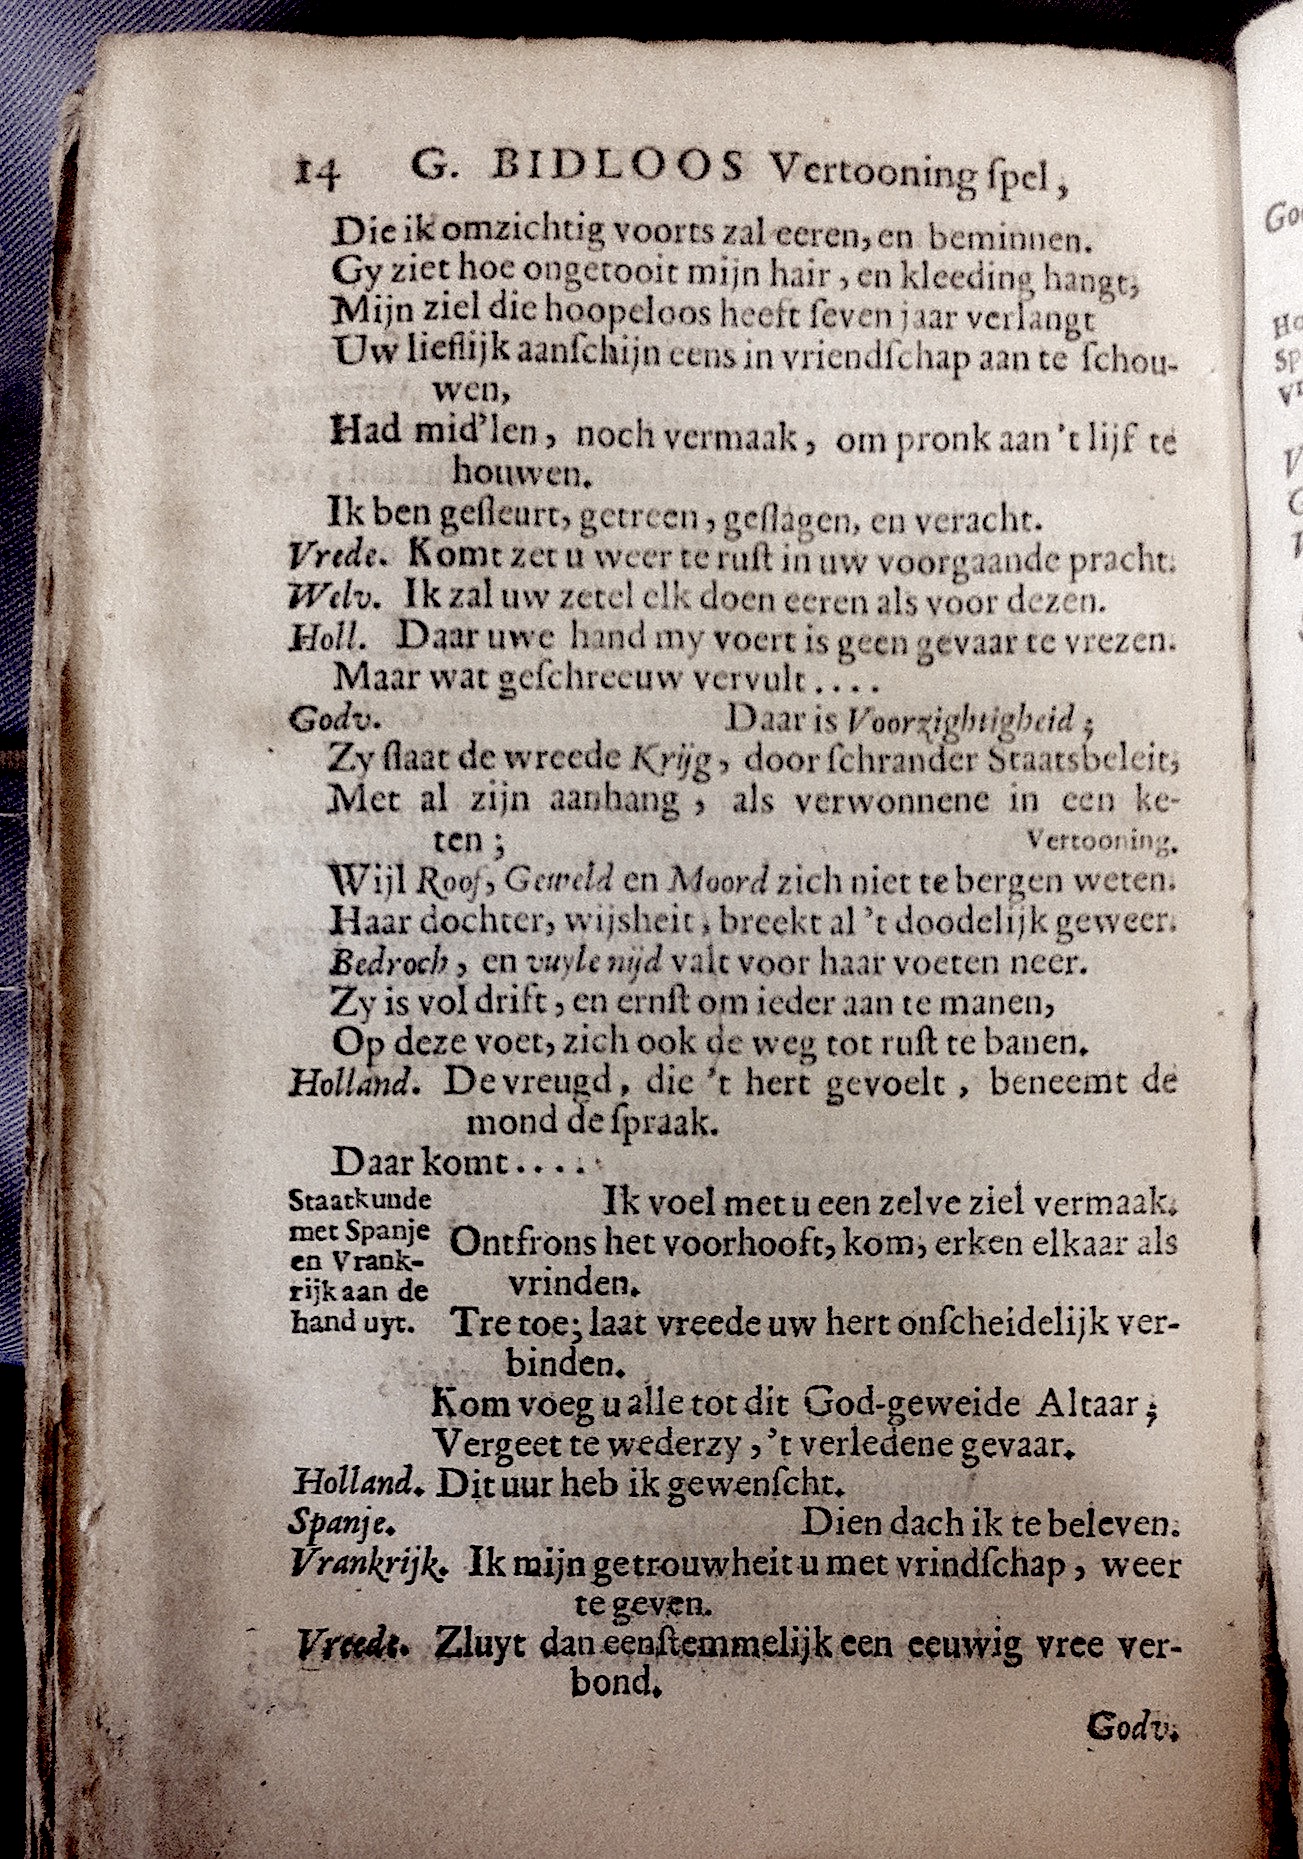 14 G. BIDLOOS Vertooning ſpel,
Die ik omzichtig voorts zal eeren, en beminnen.
Gy ziet hoe ongetooit mijn hair, en kleeding hangt;
Mijn ziel die hoopeloos heeft ſeven jaar verlangt
Uw lieflijk aanſchijn eens in vriendſchap aan te ſchou-
wen,
Had mid'len, noch vermaak, om pronk aan 't lijf te
houwen.
Ik ben geſleurt, getreen, geſlagen, en veracht.
Vrede. Komt zet u weer te ruſt in uw voorgaande pracht.
Welv. Ik zal uw zetel elk doen eeren als voor dezen.
Holl. Daar uwe hand my voert is geen gevaar te vrezen.
Maar wat geſchreeuw vervult....
Godv. Daar is Voorzightigheid;
Zy ſlaat de wreede Krijg, door ſchrander Staatsbeleit,
Met al zijn aanhang, als verwonnene in een ke-
ten; Vertooning.
Wijl Roof, Geweld en Moord zich niet te bergen weten.
Haar dochter, wijsheit, breekt al 't doodelijk geweer.
Bedroch, en vuyle nijd valt voor haar voeten neer.
Zy is vol drift, en ernſt om ieder aan te manen,
Op deze voet, zich ook de weg tot ruſt te banen.
Holland. De vreugd, die 't hert gevoelt, beneemt de
mond de ſpraak.
Daar komt....
Staatkunde Ik voel met u een zelve ziel vermaak.
met Spanje Ontfrons het voorhooft, kom, erken elkaar als
en Vrank- vrinden.
rijk aan de
hand uyt. Tre toe; laat vreede uw hert onſcheidelijk ver-
binden.
Kom voeg u alle tot dit God-geweide Altaar;
Vergeet te wederzy, 't verledene gevaar.
Holland. Dit uur heb ik gewenſcht.
Spanje. Dien dach ik te beleven.
Vrankrijk. Ik mijn getrouwheit u met vrindſchap, weer
te geven.
Vreede. Zluyt dan eenſtemmelijk een eeuwig vree ver-
bond.
Godv.